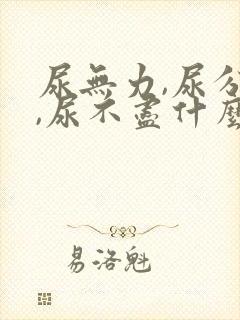 尿無力,尿分
,尿不盡什麼
易洛魁